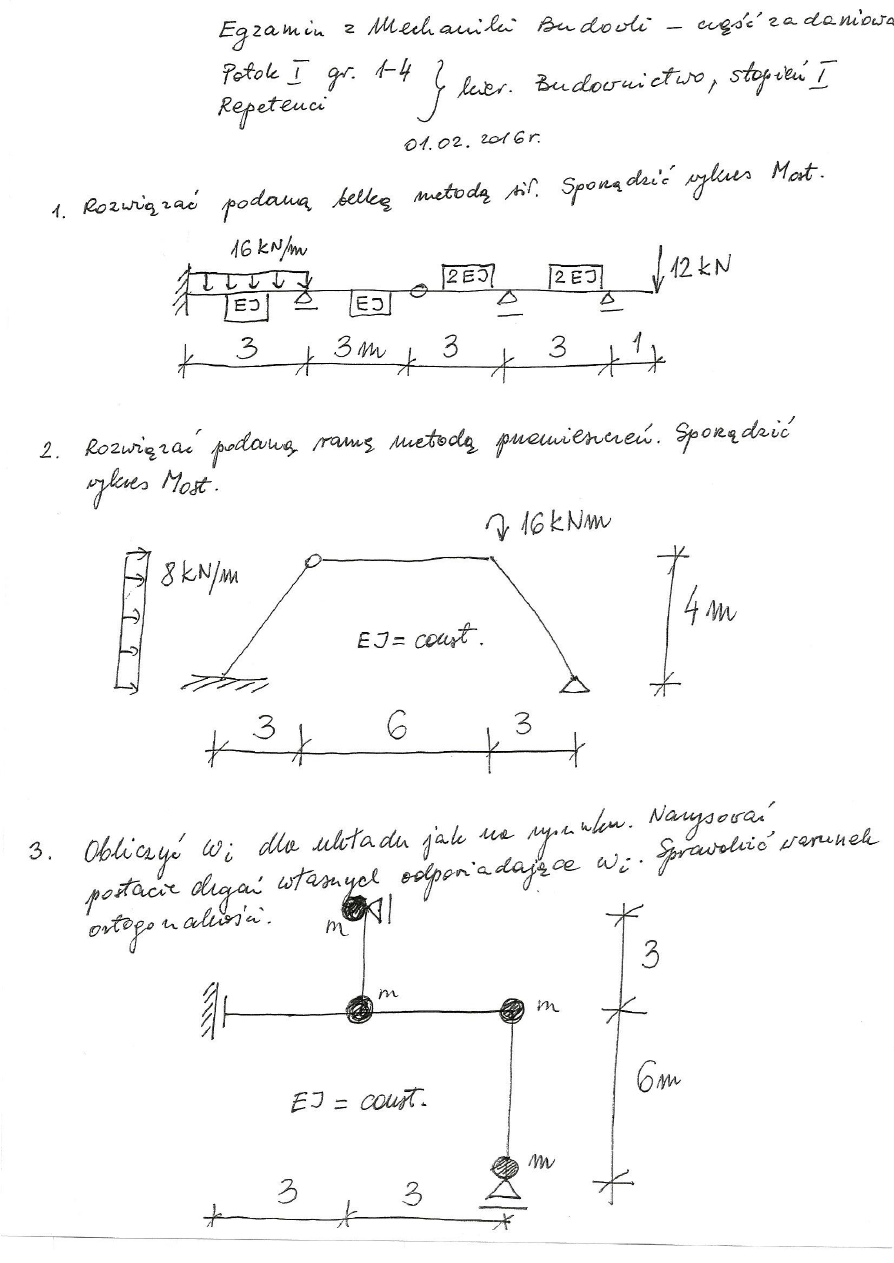 Egzamin z Mechaniki Budowli – część zadaniowa
Potok I gr. 1-4
Repetenci
kier. Budownictwo, stopień I
01.02.2016r.
1. Rozwiązać podaną belkę metodą sił. Sporządzić wykres Most.
16 kN/m
2EJ
2EJ
12 kN
EJ
EJ
3
3m
3
3
1
2. Rozwiązać podaną ramę metodą przemieszczeń. Sporządzić
wykres Most.
16 kNm
8 kN/m
4m
EJ = const.
3
6
3
3. Obliczyć ωi dla układu jak na rysunku. Narysować
postacie drgań własnych odpowiadające ωi. Sprawdzić warunek
ortogonalności.
m
3
m
m
6m
EJ = const.
m
3
3